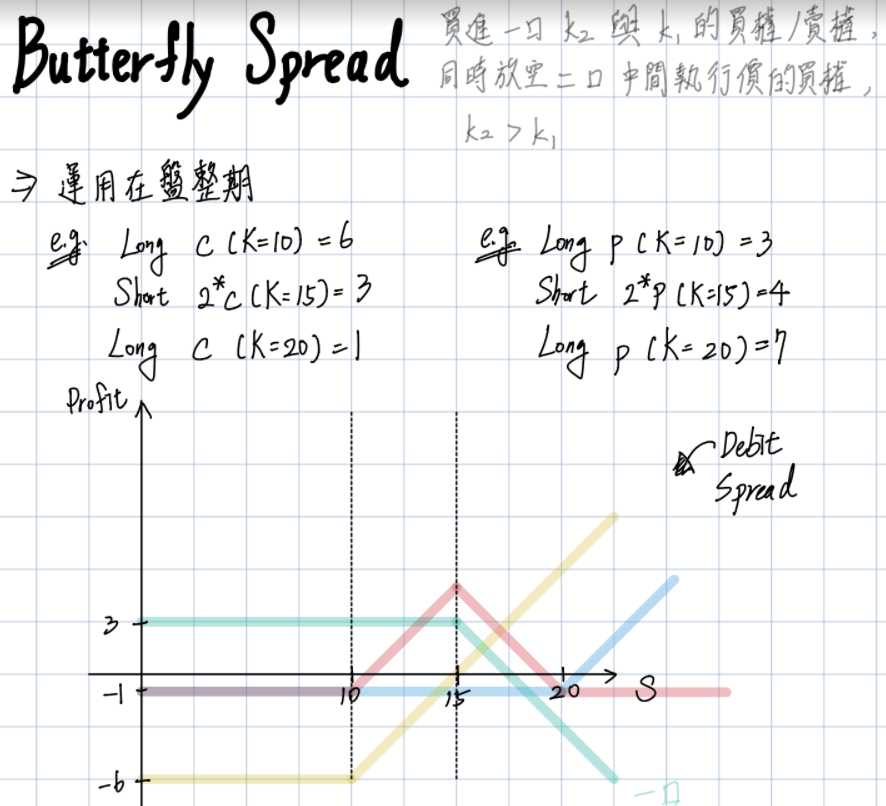 Butterfly Spread
買進一口 k₂ 與 k₁ 的買權/賣權,
同時放空二口 中間執行價的買權,
k₂ > k₁
⇒ 運用在盤整期
e.g. Long C (K=10) = 6
Short 2*C (K=15) = 3
Long C (K=20) = 1
e.g. Long P (K=10) = 3
Short 2*P (K=15) = 4
Long P (K=20) = 7
Profit
Debit
Spread
3
-1
10
15
20
S
-6
一口